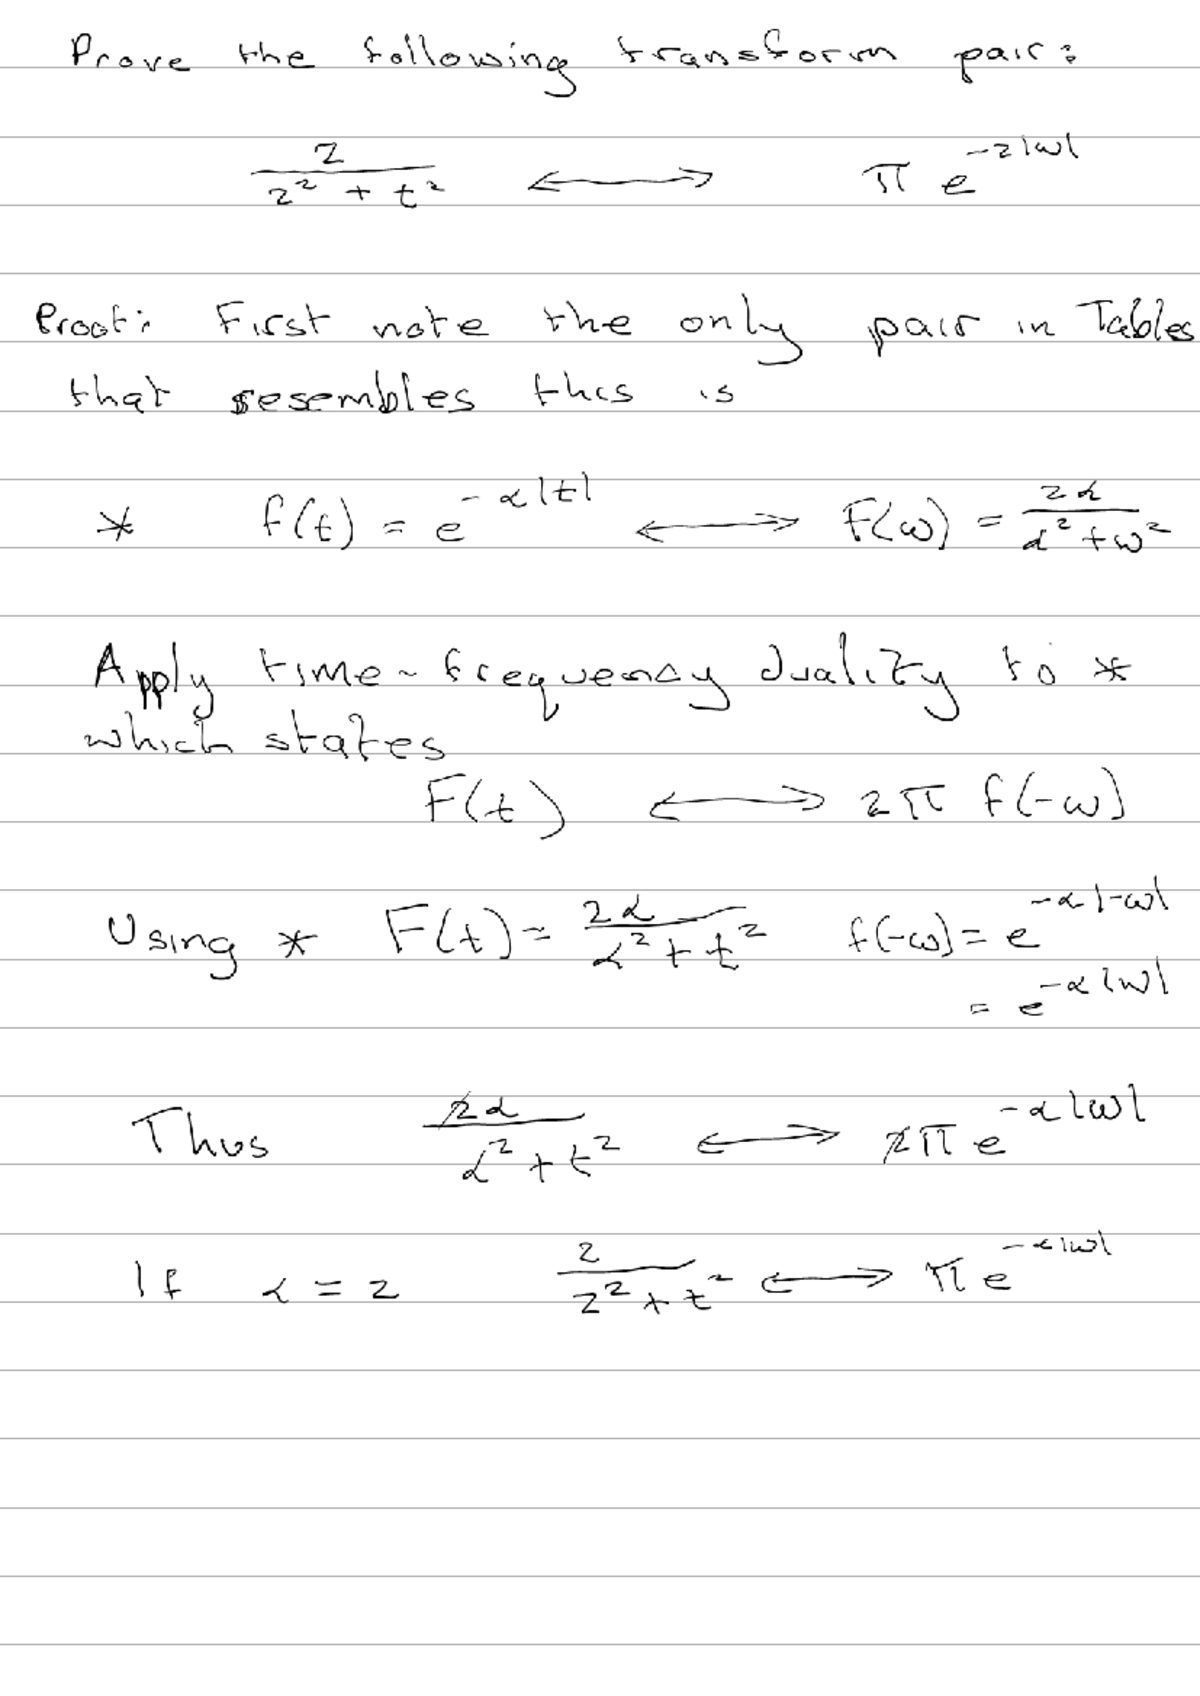 Prove the following transform pair:
2 / (2² + t²) ⟷ π e^(-2|ω|)
Proof: First note the only pair in Tables
that resembles this is
* f(t) = e^(-α|t|) ⟷ F(ω) = 2α / (α² + ω²)
Apply time-frequency duality to *
which states
F(t) ⟷ 2π f(-ω)
Using * F(t) = 2α / (α² + t²) f(-ω) = e^(-α|-ω|)
= e^(-α|ω|)
Thus 2α / (α² + t²) ⟷ 2π e^(-α|ω|)
If α = 2 2 / (2² + t²) ⟷ π e^(-α|ω|)